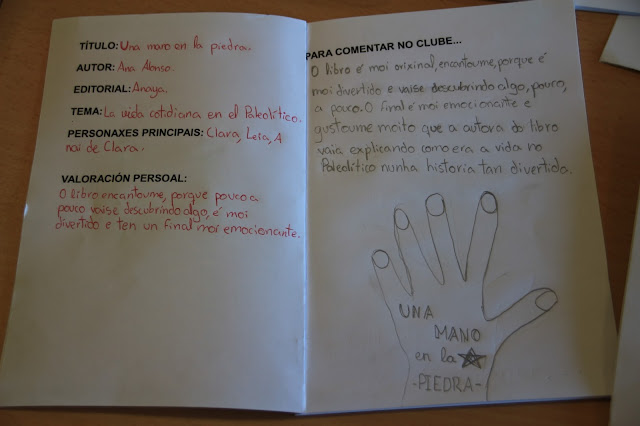 TÍTULO: Una mano en la piedra.
AUTOR: Ana Alonso.
EDITORIAL: Anaya.
TEMA: La vida cotidiana en el Paleolítico.
PERSONAXES PRINCIPAIS: Clara, Leia, A
nai de Clara.
VALORACIÓN PERSOAL:
O libro encantoume, porque pouco a
pouco vaise descubrindo algo, é moi
divertido e ten un final moi emocionante.
PARA COMENTAR NO CLUBE...
O libro é moi orixinal, encantoume, porque é
moi divertido e vaise descubrindo algo, pouco,
a pouco. O final é moi emocionante e
gustoume moito que a autora do libro
vaia explicando como era a vida no
Paleolítico nunha historia tan divertida.
UNA
MANO
en la
-PIEDRA-